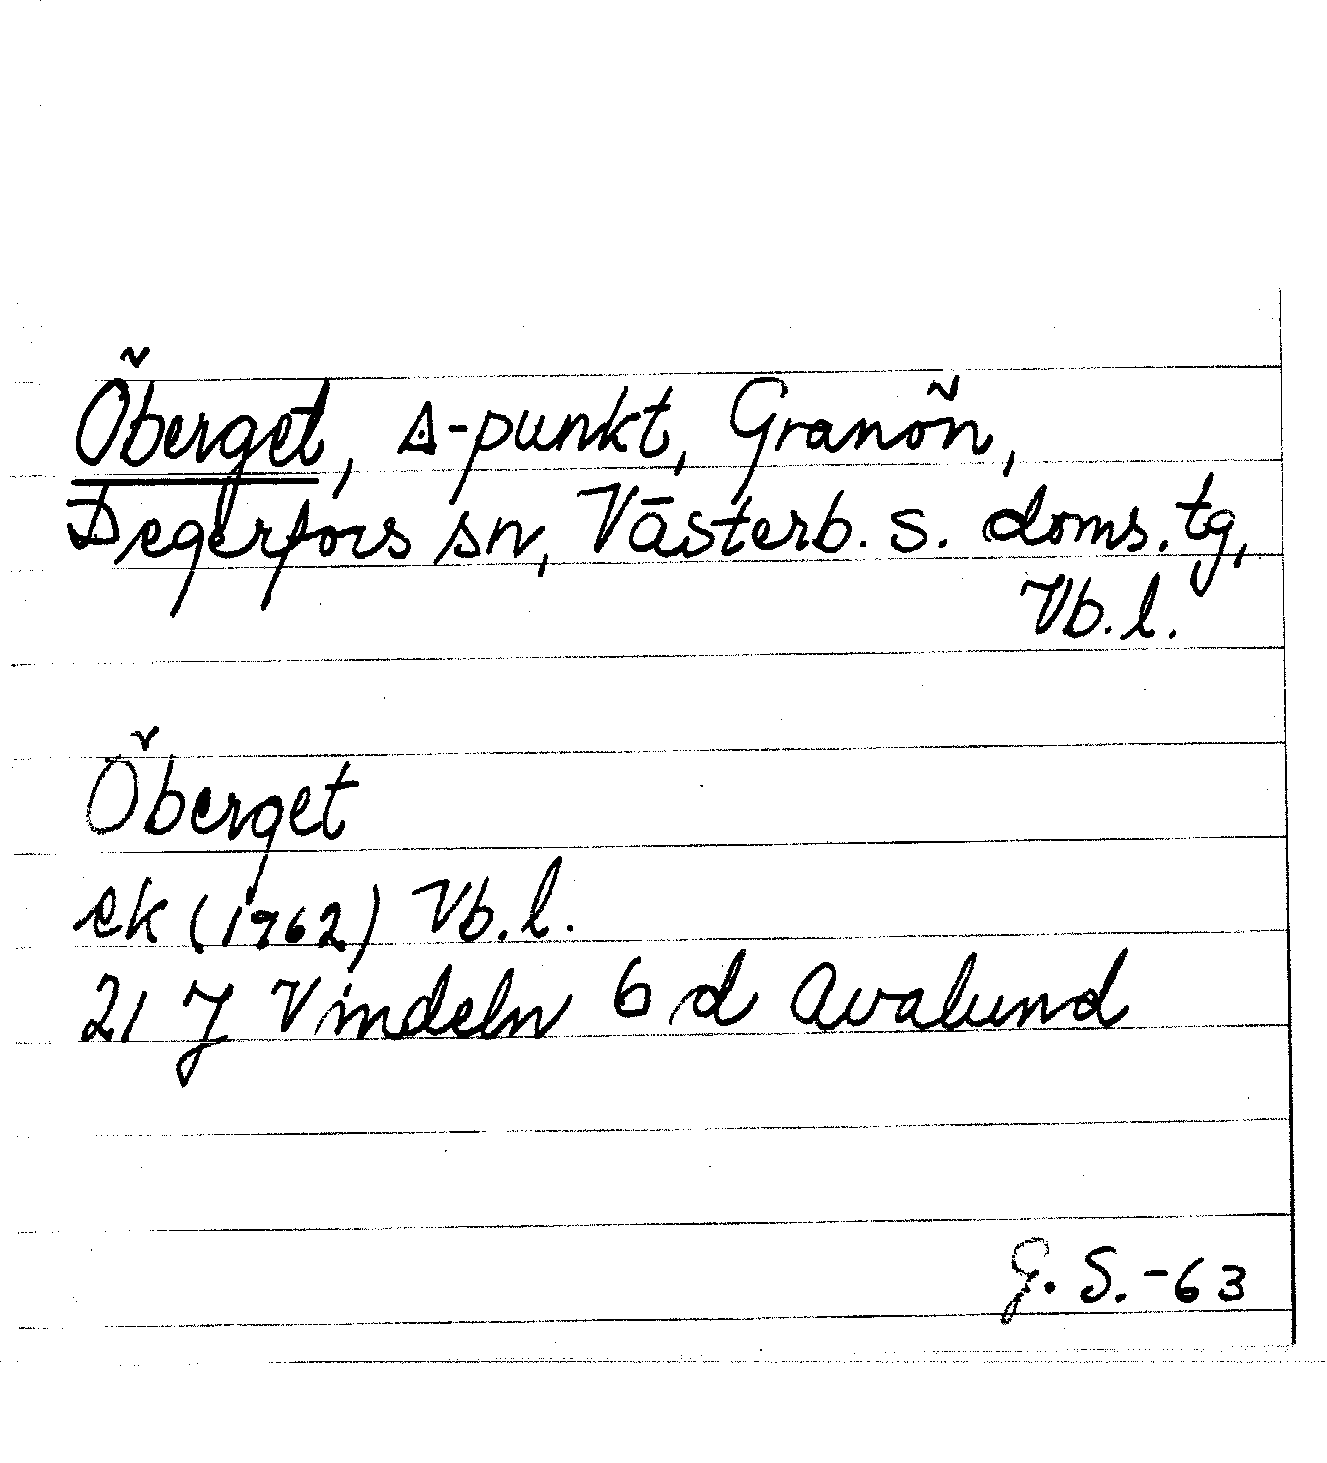 Öberget, ◬-punkt, Granön,
Degerfors sn, Västerb. s. doms. tg,
Vb. l.
Öberget
ek (1962) Vb. l.
21 J Vindeln 6 d Avalund
G. S. -63